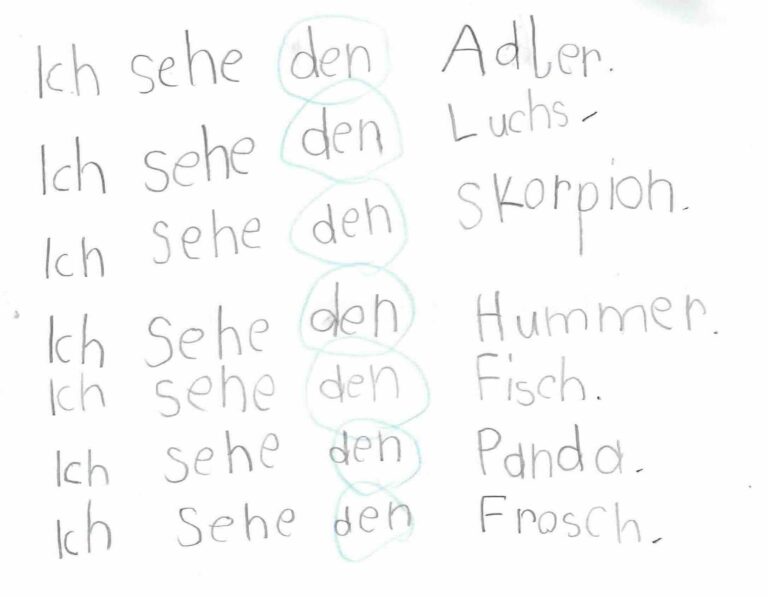 Ich sehe den Adler.
Ich sehe den Luchs.
Ich sehe den Skorpion.
Ich sehe den Hummer.
Ich sehe den Fisch.
Ich sehe den Panda.
Ich sehe den Frosch.